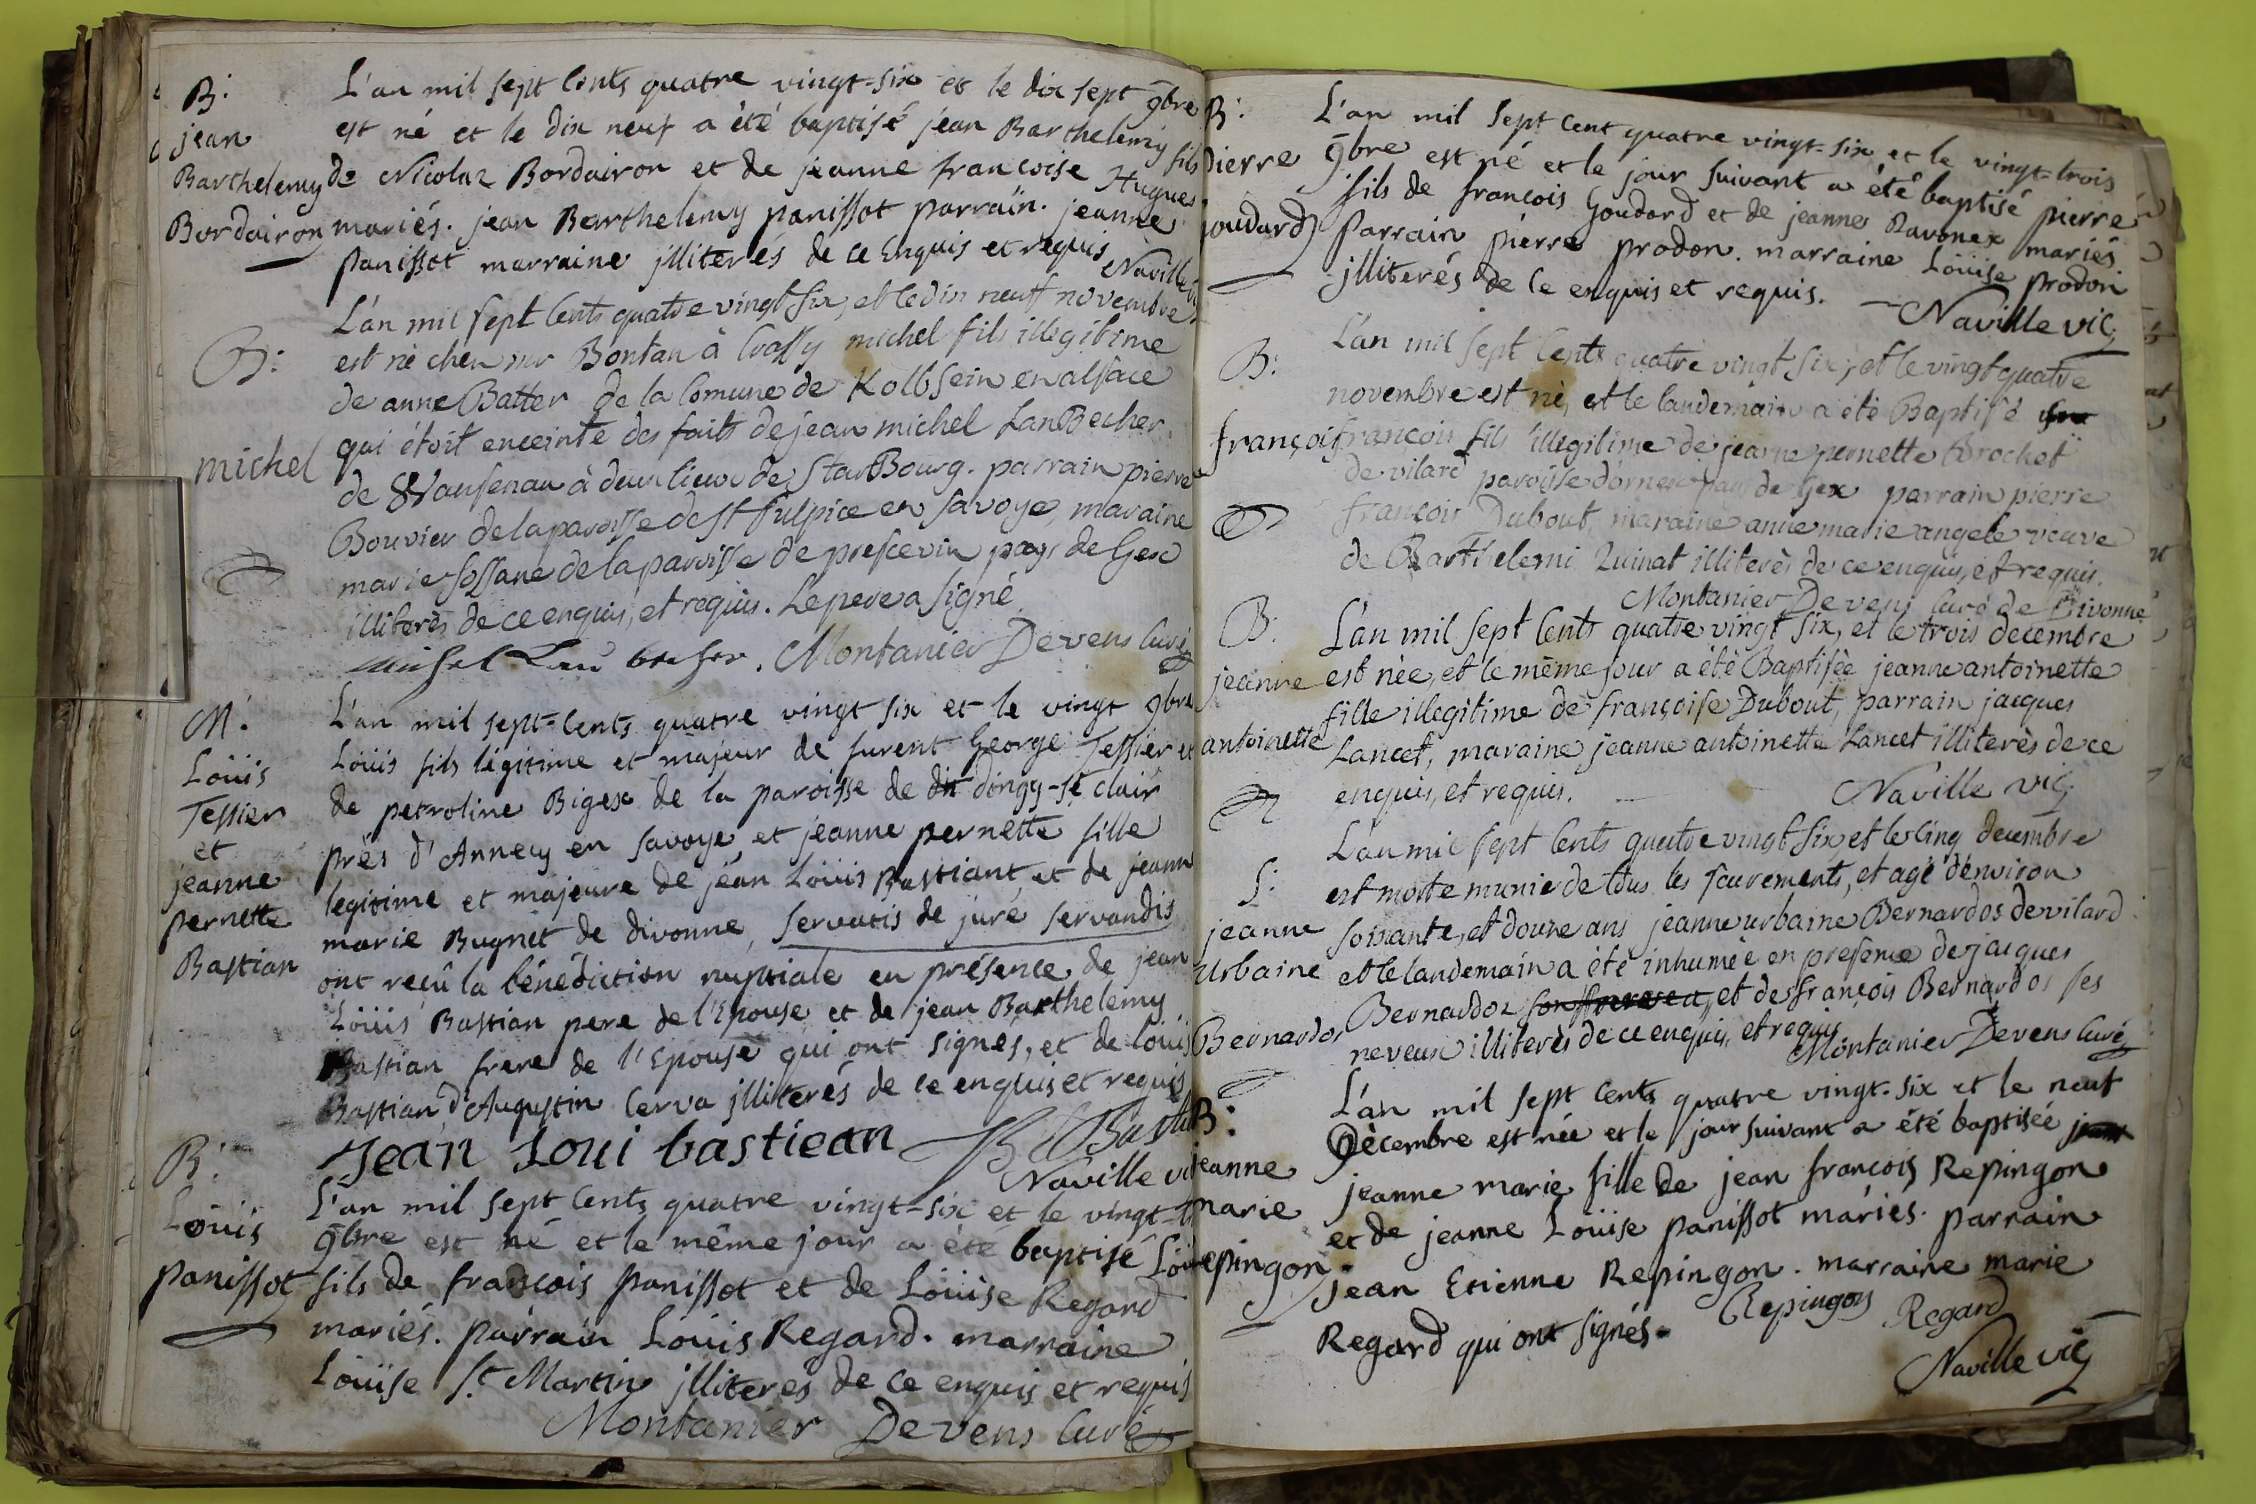 B:
jean
Barthelemy
Bordairon
L'an mil sept cents quatre vingt-six et le dix sept 9bre
est né et le dix neuf a été baptisé jean Barthelemy fils
de Nicolaz Bordairon et de jeanne francoise Hugues
mariés. jean Barthelemy panissot parrain. jeanne
panissot marraine jlliteres de ce Enquis et requis
Naville
B:
michel
L'an mil sept Cents quatre vingt six, et le dix neuf novembre
est né chez mr Bontan à Crassy michel fils illegitime
de anne Batter de la Comune de Kolbsein en alsace
qui étoit enceinte des faits de jean michel LanBecher
de Wansenau à deux lieux de StarBourg. parrain pierre
Bouvier de la paroisse de st sulpice en savoye, maraine
marie sossane de la paroisse de prescevin pays de Gex
illiterès de ce enquis, et requis. Le pere a signé
Montanier Devens Curé
M:
Loüis
Tessier
et
jeanne
pernette
Bastian
L'an mil sept-Cents quatre vingt six et le vingt 9bre
Loüis fils légitime et majeur de furent George Tessier et
de petroline Bigex de la paroisse de dit dingy-st clair
près d'Annecy en savoye et jeanne pernette fille
legitime et majeure de jean Loüis Bastiant, et de jeann
marie Bugnet de divonne, servatis de jure servandis
ont reçû la bénédiction nuptiale en présence de jean
Loüis Bastian pere de l'Epouse et de jean Barthelemy
Bastian frere de l'Epouse qui ont signés, et de loüis
Bastian d'Augustin Cerva jlliterés de ce enquis et requis
Jean Loui bastiean
Naville vi
B:
Loüis
panissot
L'an mil sept Cents quatre vingt-six et le vingt-
9bre est né et le même jour a été baptisé Loüi
fils de francois panissot et de Loüise Regard
mariés. parrain Loüis Regard. marraine
Loüise St Martin jlliteres de ce enquis et requis
Montanier Devens Curé
B:
pierre
goudard
L'an mil sept cent quatre vingt-six et le vingt-trois
9bre est né et le jour suivant a été baptisé pierre
fils de francois Goudard et de jeanne Ravonex mariés
Parrain pierre prodon. marraine Loüise prodon
jlliterés de ce enquis et requis.
Naville vic
B:
françois
L'an mil sept Cents quatre vingt six, et le vingt quatre
novembre est né, et le landemain a été Baptisé
françois fils illegitime de jeanne pernette Brochet
de vilard paroisse d'ornex pays de Gex parrain pierre
françois Dubout, maraine anne marie angele veuve
de Barthelemi Zuinat illiterès de ce enquis, et requis.
Montanier Devens Curé de Divonne
B:
jeanne
antoinette
L'an mil sept Cents quatre vingt six, et le trois decembre
est née, et le même jour a été Baptisée jeanne antoinette
fille illegitime de françoise Dubout, parrain jacques
Lancet, maraine jeanne antoinette Lancet illiterès de ce
enquis, et requis.
Naville vic
S:
jeanne
Urbaine
Bernardos
L'an mil sept Cents quatre vingt six et le Cinq decembre
est morte munie de tous les sacrements, et agé d'environ
soixante, et douze ans jeanne urbaine Bernardos de vilard
et le landemain a été inhumée en presence de jacques
Bernardoz et de françois Bernardos ses
neveux illiterès de ce enquis, et requis
Montanier Devens Curé
B:
jeanne
marie
Repingon
L'an mil sept Cents quatre vingt-six et le neuf
Décembre est née et le jour suivant a été baptisée
jeanne marie fille de jean françois Repingon
et de jeanne Loüise panissot mariés. parrain
jean Etienne Repingon. marraine marie
Regard qui ont signés.
Repingon Regard
Naville vic